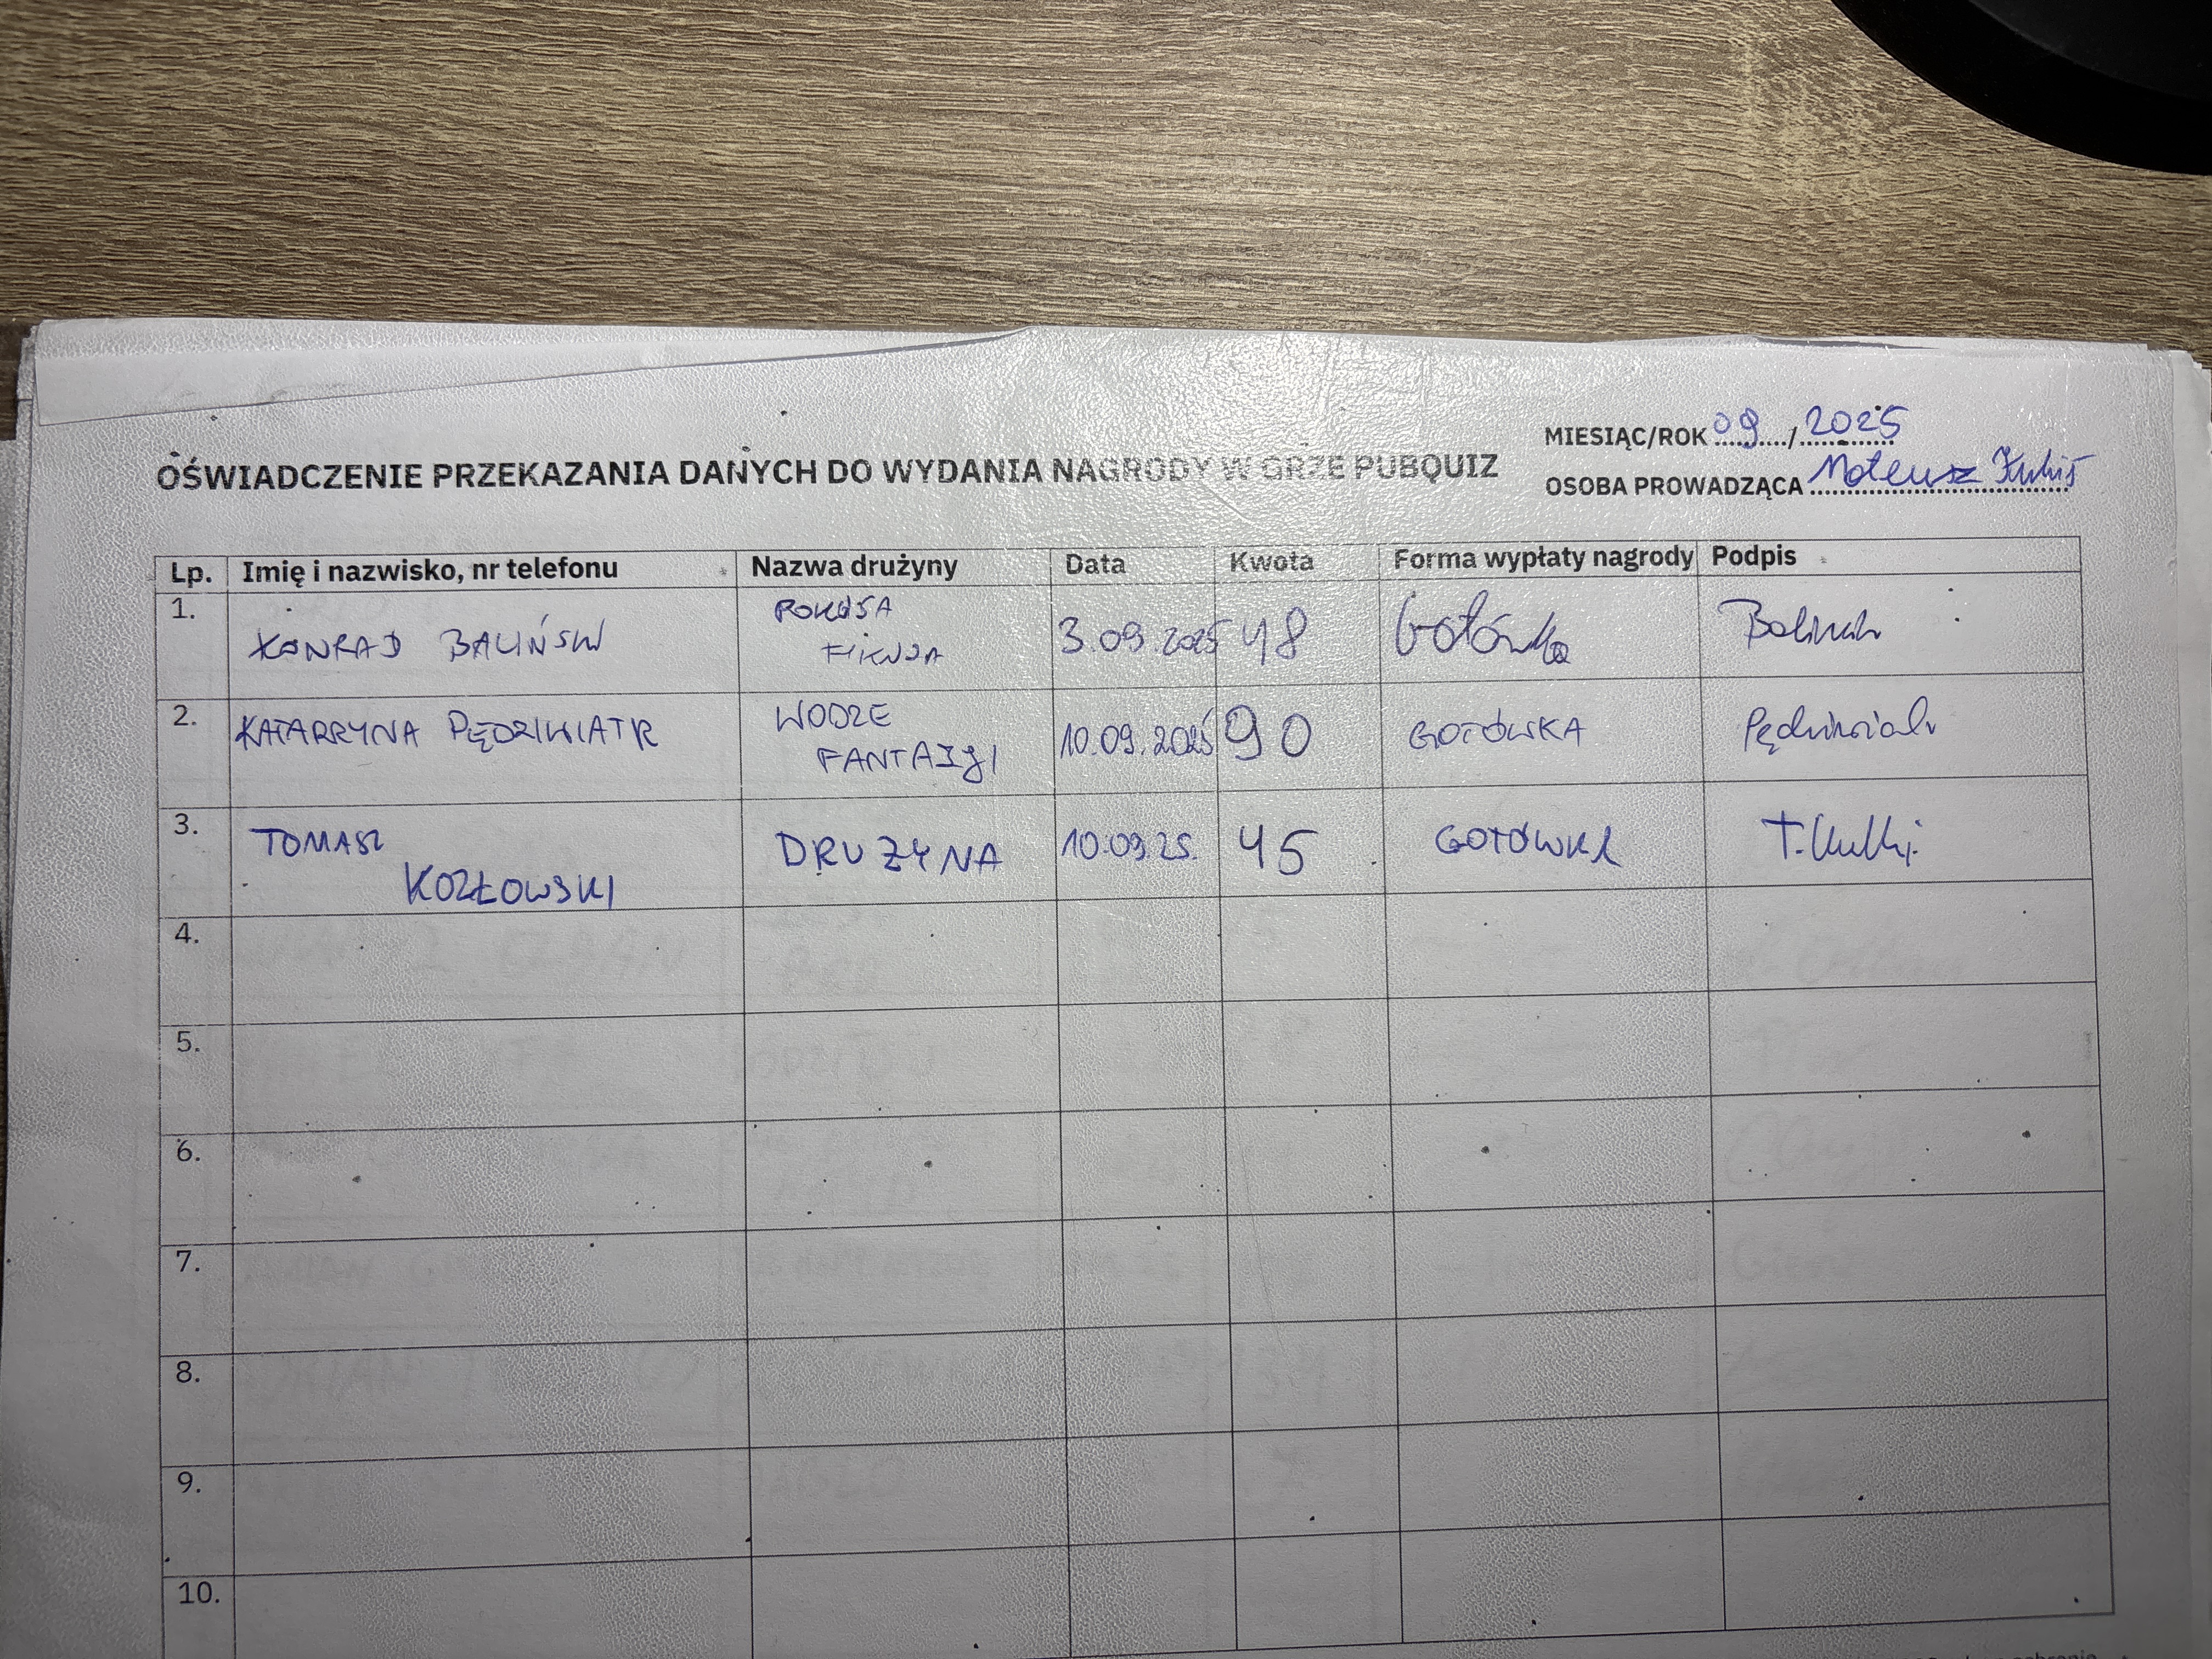 MIESIĄC/ROK 09/2025
OŚWIADCZENIE PRZEKAZANIA DANYCH DO WYDANIA NAGRODY W GRZE PUBQUIZ
OSOBA PROWADZĄCA Mateusz
Lp. Imię i nazwisko, nr telefonu Nazwa drużyny Data Kwota Forma wypłaty nagrody Podpis
1. KONRAD BALIŃSKI 3.09.2025 48 Gotówka
2. KATARZYNA PĘDZIWIATR WODZE FANTAZJI 10.09.2025 90 GOTÓWKA Pędziwiatr
3. TOMASZ KOZŁOWSKI DRUŻYNA 10.09.25. 45 GOTÓWKA
4.
5.
6.
7.
8.
9.
10.